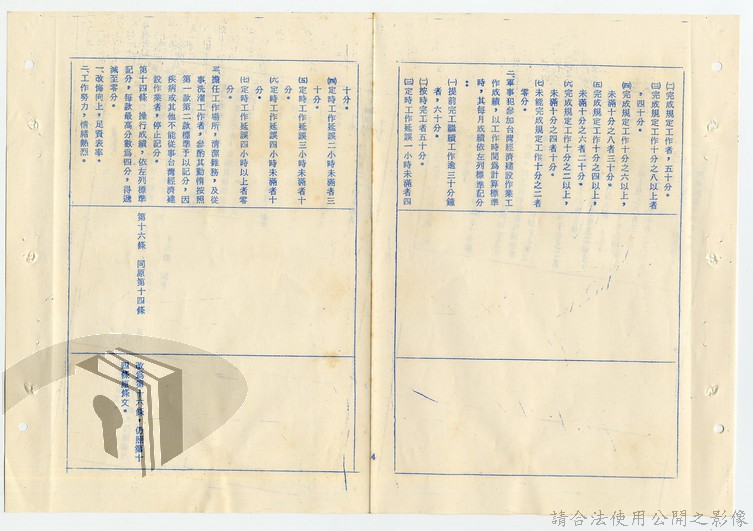 ㈡完成規定工作者,五十分。
㈢完成規定工作十分之八以上者
,四十分。
㈣完成規定工作十分之六以上,
未滿十分之八者三十分。
㈤完成規定工作十分之四以上,
未滿十分之六者二十分。
㈥完成規定工作十分之二以上,
未滿十分之四者十分。
㈦未能完成規定工作十分之二者
零分。
二、軍事犯參加台灣經濟建設作業工
作成績,以工作時間爲計算標準
時,其每月成績依左列標準記分
:
㈠提前完工繼續工作逾三十分鐘
者,六十分。
㈡按時完工者五十分。
㈢定時工作延誤一小時未滿者四
4
十分。
㈣定時工作延誤二小時未滿者三
十分。
㈤定時工作延誤三小時未滿者十
分。
㈥定時工作延誤四小時未滿者十
分。
㈦定時工作延誤四小時以上者零
分。
三、擔任工作場所,清潔雜務,及從
事洗濯工作者,參酌其勤惰按照
第一款第二款標準予以記分,因
疾病或其他不能從事台灣經濟建
設作業者,停止記分。
第十四條 操行成績,依左列標準
記分,每款最高分數爲四分,得遞
減至零分。
一、改悔向上,足資表率。
二、工作努力,情緒熱烈。
第十六條 同原第十四條
改爲第十六條,仍照第十
四條原條文。
請合法使用公開之影像